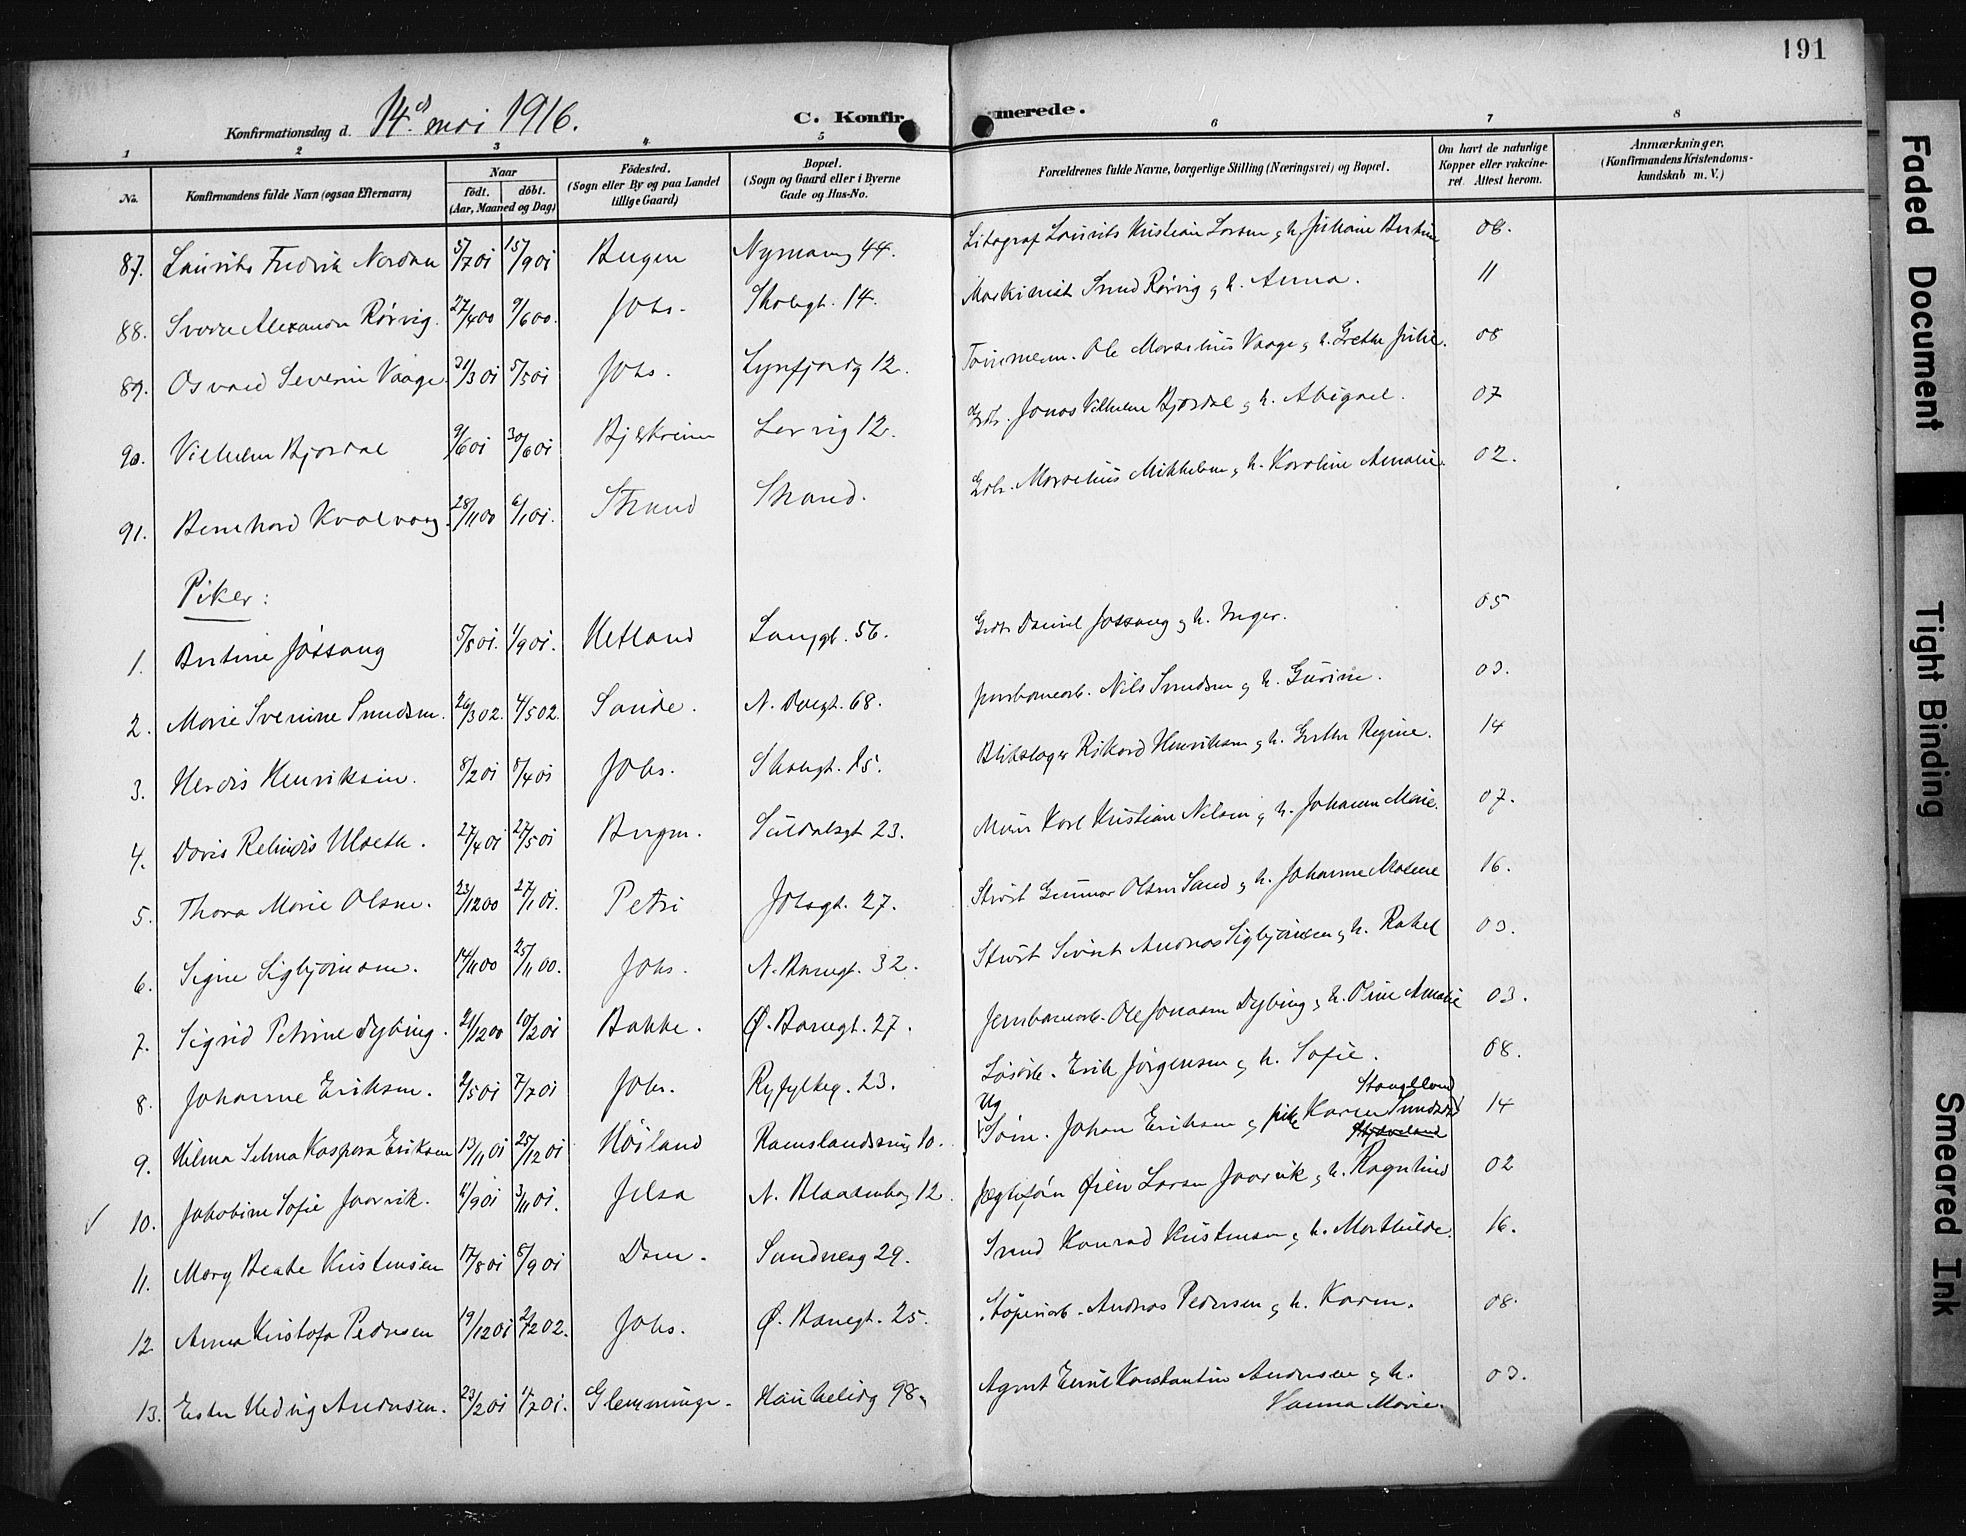 191
Konfirmationsdag d. 14de mai 1916. C. Konfirmerede.
1 2 3 4 5 6 7 8
No. Konfirmandens fulde Navn (ogsaa Efternavn) Naar født. døbt. (Aar, Maaned og Dag) Fødested. (Sogn eller By og paa Landet tillige Gaard) Bopæl. (Sogn og Gaard eller i Byerne Gade og Hus-No. Forældrenes fulde Navne, borgerlige Stilling (Næringsvei) og Bopæl. Om havt de naturlige Kopper eller vakcineret. Attest herom. Anmærkninger. (Konfirmandens Kristendomskundskab m. V.)
87. Laurits Fredrik 5/7 01 15/9 01 Bergen Nymansg 44. Litograf Laurits Kristian Larsen og h. Juliane Bertine 06.
88. Sverre Alexander Rørvig. 27/4 00 9/6 00. Johs. Skolegt. 14. Maskinist Svend Rørvig og h. Anna. 11
89. Osvald Severin Vaage. 31/3 01 5/5 01 Johs. Lynfjordg 12. Tømmerm. Ole Marselius Vaage og h. Grethe Julie. 08
90. Vilhelm Bjordal 9/6 01 30/6 01 Bjerkreim Lervig 12. Grdbr. Jonas Vilhelm Bjordal og h. Abigael. 07
91. Bernhard Kvalvaag. 28/11 00 6/1 01. Strand Strand. Grdbr. Marselius Mikkelsen og h. Karoline Amalie. 02.
Piker:
1. Bertine Jøssang 5/8 01. 1/9 01. Hetland Langgt. 56. Grdbr Daniel Jøssang og h. Inger. 05
2. Marie Sverine Svendsen. 26/3 02. 4/5 02. Sande. N. Dalgt. 68. Jernbanearb. Nils Svendsen og h. Gurine. 03.
3. Herdis Henriksen. 8/2 01 8/4 01 Johs. Skolegt. 15. Blikslager Rikard Henriksen og h. Grethe Regine. 14
4. Doris Relindis 27/4 01 27/5 01 Bergen. Suldalsgt 23. Murer Karl Kristian Nilsen og h. Johanne Marie. 07.
5. Thora Marie Olsen. 23/12 00 27/1 01. Petri Jelsagt. 27. Stuert Gunnar Olsen Sand og h. Johanne Malene 16.
6. Signe Sigbjørnsen. 14/11 00 25/11 00. Johs. N. Banegt. 32. Stuert Sivert Andreas Sigbjørnsen og h. Rakel 03.
7. Sigrid Petrine Dybing. 21/12 00 10/2 01 Bakke. Ø. Banegt. 27. Jernbanearb. Ole Jonassen Dybing og h. Oline Amalie 03.
8. Johanne Eriksen. 2/5 01 7/7 01 Johs. Ryfylkeg. 23. Løsarb. Erik Jørgensen og h. Sofie. 08.
9. Hilma Selma Kaspara Eriksen 13/11 01 25/12 01 Høiland Ramslandsvei 10. Ug Søm. Johan Eriksen og pike Karen Svendsd 14
10. Jakobine Sofie Jaarvik. 4/9 01 3/11 01. Jelsa N. Blaasenborg 12. Jægtefør. Øien Larsen Jaarvik og h. Ragnhild 02
11. Mary Beate Kristensen 17/8 01 8/9 01 Dom. Sandnesg 29. Svend Konrad Kristensen og h. Marthilde. 16.
12. Anna Kristofa Pedersen 19/12 01 2/2 02. Johs. Ø. Banegt. 25. Støperiarb. Andreas Pedersen og h. Karen. 08.
13. Ester Hedvig Andersen. 23/2 01 1/7 01. Glemminge. Haukeligt 98. Agent Emil Konstantin Andersen og h. 03.
Hanna Marie.
Faded Document
Tight Binding
Smeared Ink